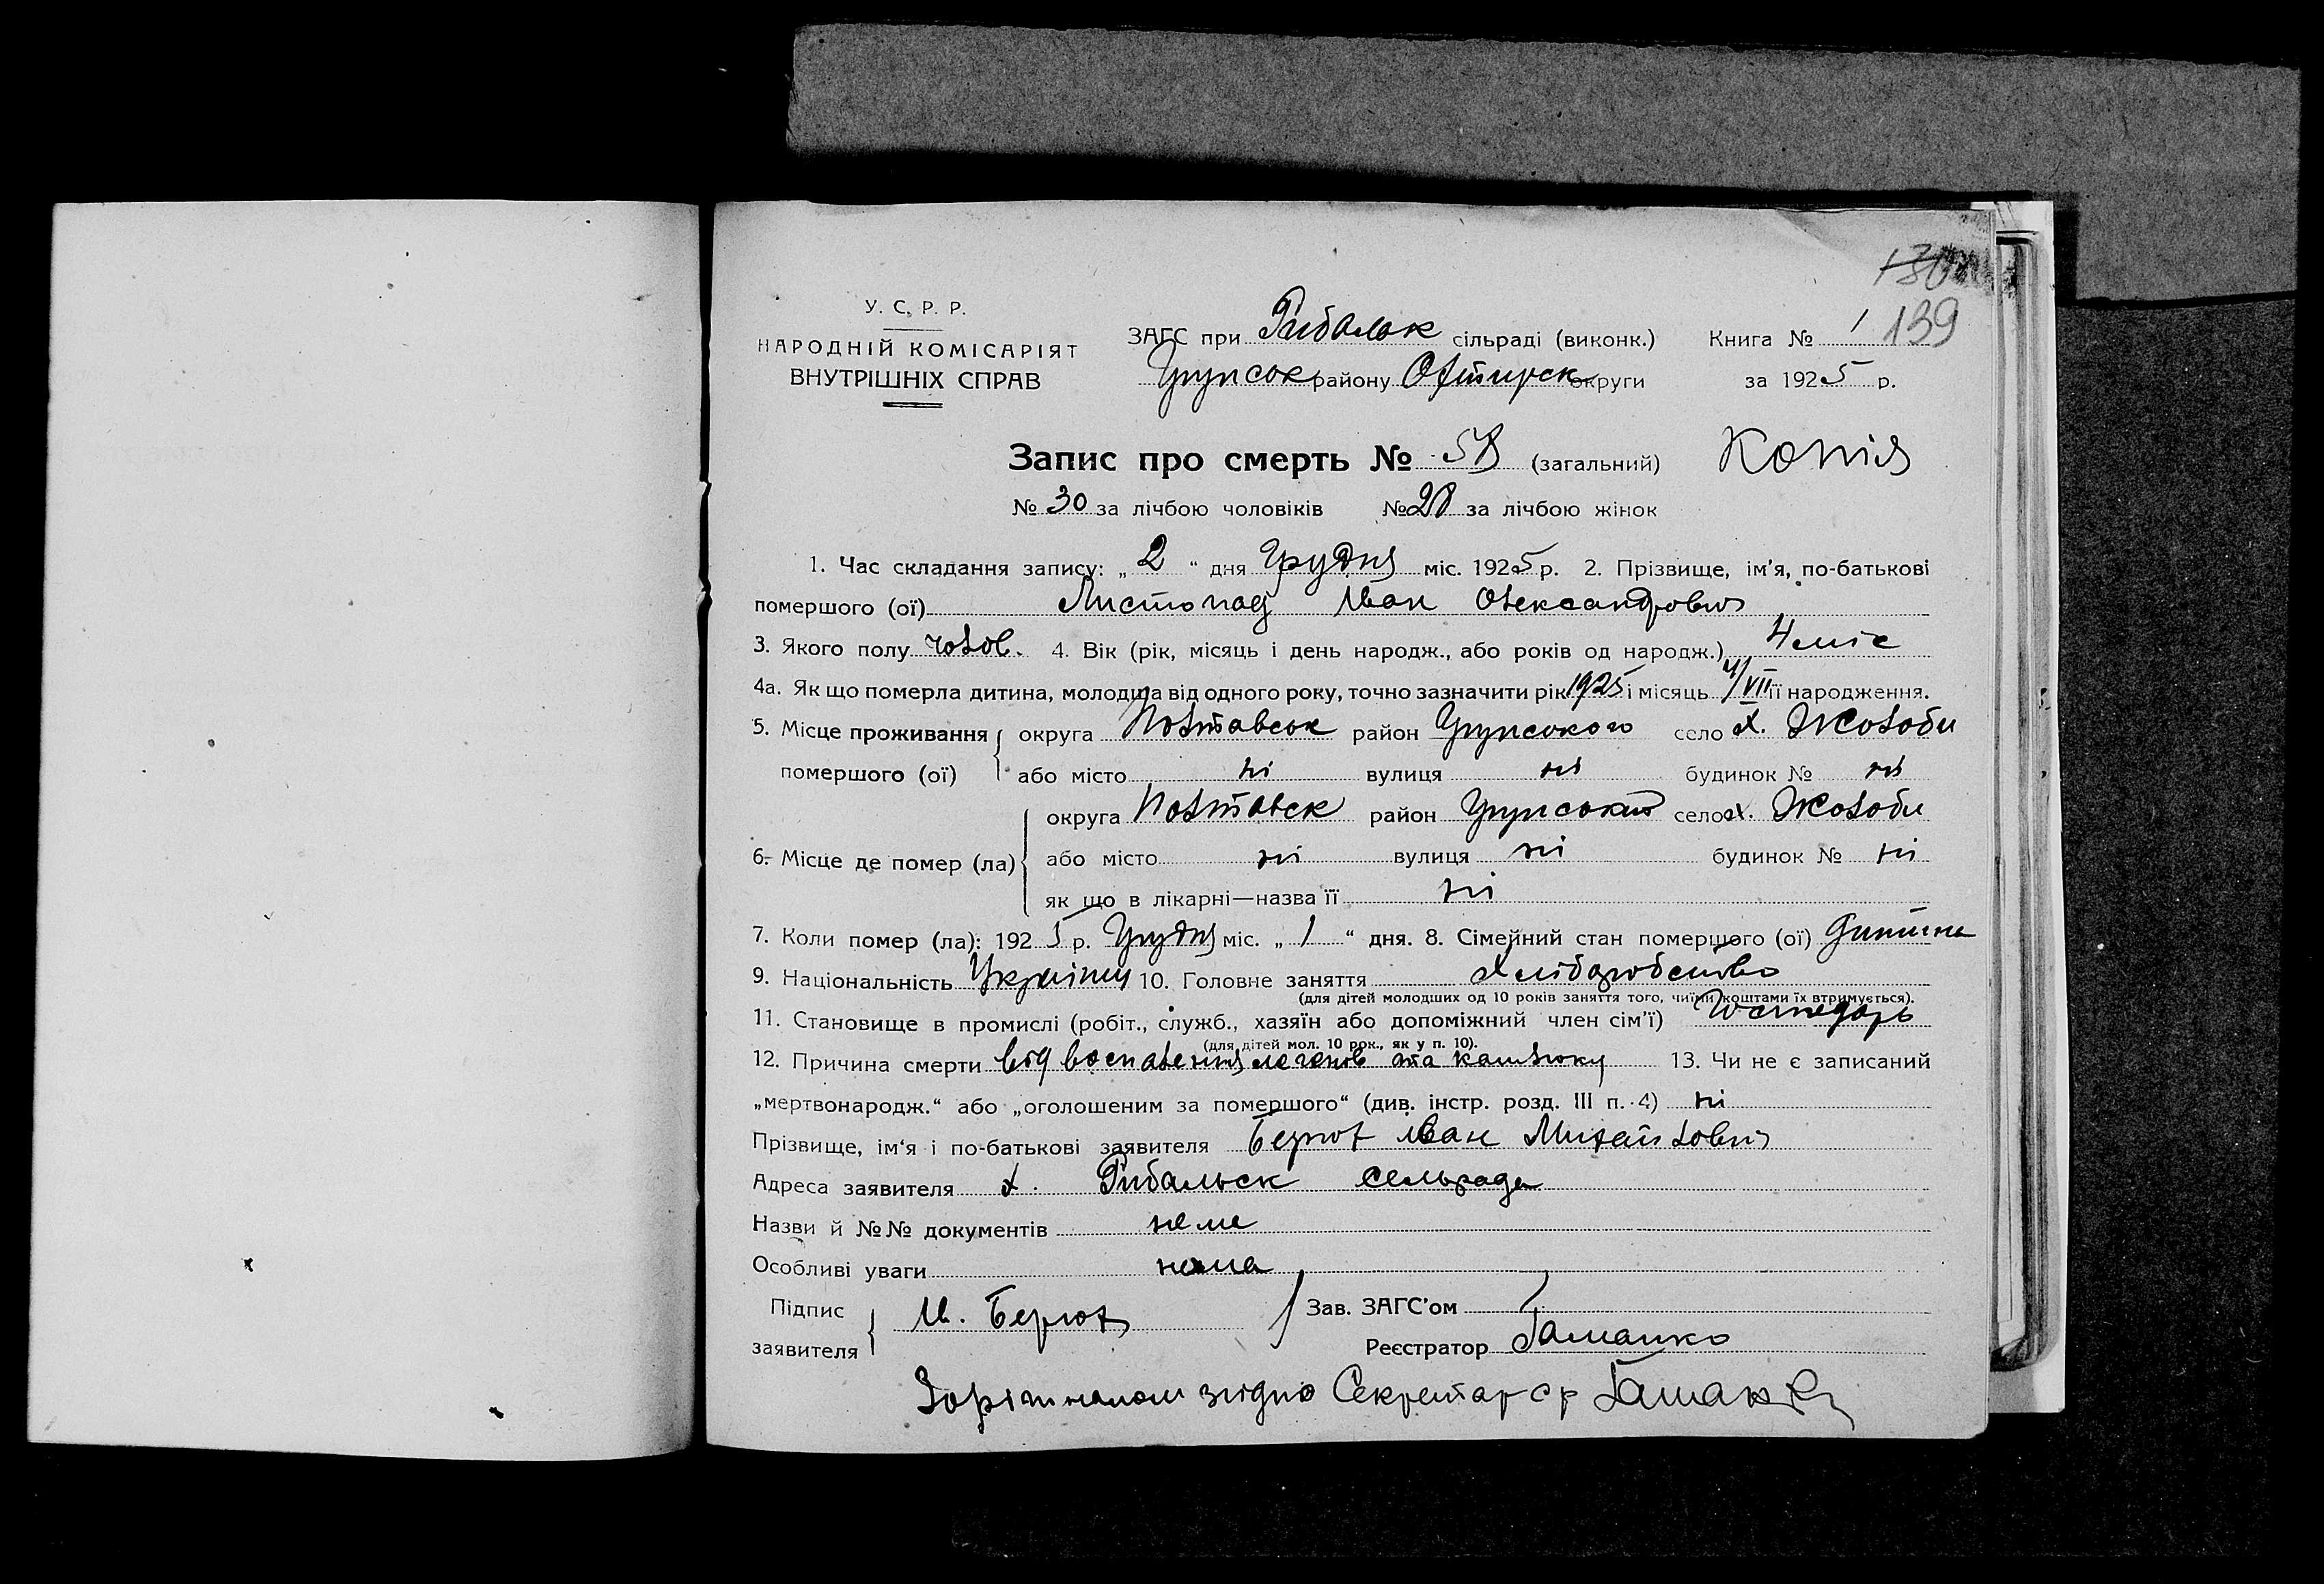 130
139
У. С. Р. Р.
НАРОДНІЙ КОМІСАРІЯТ
ВНУТРІШНІХ СПРАВ
ЗАГС при Рибальск сільраді (виконк.) Книга № 1
Грунсок району Охтирск округи за 1925 р.
Запис про смерть № 58 (загальний) Копія
№ 30 за лічбою чоловіків № 28 за лічбою жінок
1. Час складання запису: „ 2 “ дня Грудня міс. 1925 р. 2. Прізвище, ім'я, по-батькові
помершого (ої) Листопад Іван Олександрович
3. Якого полу чолов. 4. Вік (рік, місяць і день народж., або років од народж.) 4 міс
4а. Як що померла дитина, молодша від одного року, точно зазначити рік 1925 і місяць 4/VII її народження.
5. Місце проживання округа Полтавськ район Грунського село х. Жолоби
помершого (ої) або місто ні вулиця ні будинок № ні
округа Полтавск район Грунський село х. Жолоби
6. Місце де помер (ла) або місто ні вулиця ні будинок № ні
як що в лікарні—назва її ні
7. Коли помер (ла): 1925 р. Грудня міс. „ 1 “ дня. 8. Сімейний стан помершого (ої) дитина
9. Національність 10. Головне заняття Хліборобство
(для дітей молодших од 10 років заняття того, чиїми коштами їх втримується).
11. Становище в промислі (робіт., служб., хазяїн або допоміжний член сім'ї)
(для дітей мол. 10 рок., як у п. 10).
12. Причина смерти від воспалення легенів та кашлюку 13. Чи не є записаний
„мертвонародж.“ або „оголошеним за помершого“ (див. інстр. розд. III п. 4) ні
Прізвище, ім'я і по-батькові заявителя Іван Михайлович
Адреса заявителя х. Рибальск сельрада
Назви й №№ документів нема
Особливі уваги нема
Підпис заявителя И. Зав. ЗАГС'ом
Реєстратор
З орігіналом згідно Секретар с р